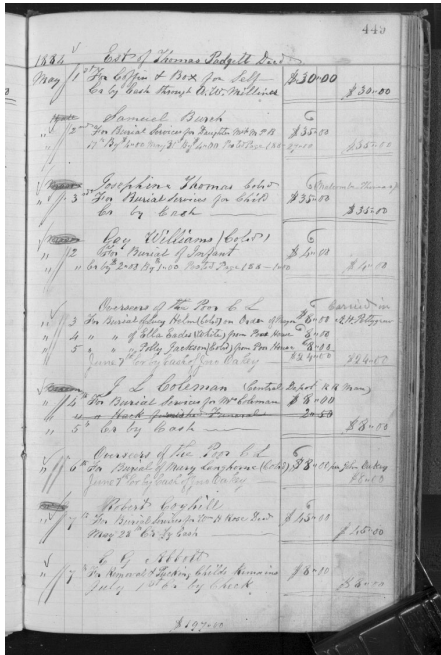 449
1884 Est of Thomas Padgett Decd
May 1st For Coffin & Box for Self $30-00
Cr by Cash through A. W. Milliner $30-00
Samuel Burch
2nd For Burial Services for Daughter $35-00
$35-00
Josephine Thomas Cold
3rd For Burial Services for Child $35-00
Cr by Cash $35-00
Guy Williams (Cold)
2 For Burial of Infant $4-00
Cr by 2-00 By 1-00 Posted Page 188 - 1-00 $4-00
Overseers of the Poor C L Carried in
3 For Burial of Lucy Helm (Cold) on Order of $8-00
4 " " of Ella Eades (White) from Poor House $8-00
5 " " Polly Jackson (Cold) from Poor House $8-00
June 7th Cr by Cash of Jno Oakey $24-00 $24-00
J L Coleman (Central Depot R R Man)
4th For Burial Services for Mr Coleman $8-00
" Hack Funeral 2-50
5th Cr By Cash $8-00
Overseers of the Poor C L
6th For Burial of Mary Langhorne (Cold) $8-00 per John Oakey
June 7th Cr by Cash of Jno Oakey $8-00
Robert Goghill
7th For Burial Services for Rose Decd $45-00
May 28th Cr By Cash $45-00
C G Abbott
7th For Removal & Packing Childs Remains $8-00
July 1st Cr by Check $8-00
$197-00